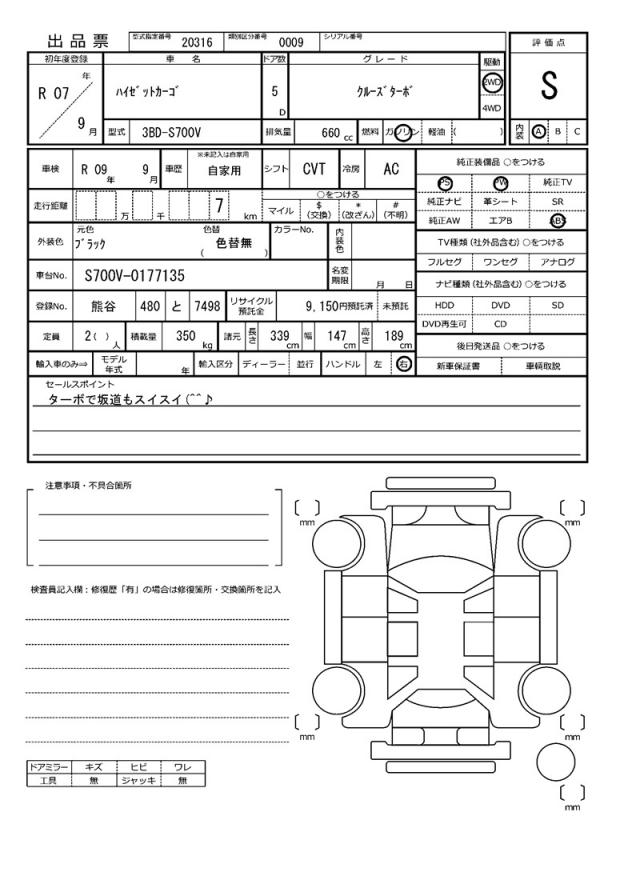 出品票 型式指定番号 20316 類別区分番号 0009 シリアル番号
評価点
S
初年度登録 車名 ドア数 グレード 駆動
R 07 年 9 月 ﾊｲｾﾞｯﾄｶｰｺﾞ 5 D ｸﾙｰｽﾞﾀｰﾎﾞ 2WD 4WD
型式 3BD-S700V 排気量 660 cc 燃料 ガソリン 軽油 ( )
内装 A B C
車検 R 09 年 9 月 車歴 ※未記入は自家用 自家用 シフト CVT 冷房 AC
走行距離 万 千 7 km
○をつける
マイル $(交換) *(改ざん) #(不明)
外装色 元色 ﾌﾞﾗｯｸ 色替 ( 色替無 ) カラーNo. 内装色
車台No. S700V-0177135 名変期限 月 日
登録No. 熊谷 480 と 7498 リサイクル預託金 9,150円預託済 未預託
定員 2( ) 人 積載量 350 kg 諸元 長さ 339 cm 幅 147 cm 高さ 189 cm
輸入車のみ⇒ モデル年式 年 輸入区分 ディーラー 並行 ハンドル 左 右
純正装備品 ○をつける
PS PW 純正TV
純正ナビ 革シート SR
純正AW エアB ABS
TV種類 (社外品含む) ○をつける
フルセグ ワンセグ アナログ
ナビ種類 (社外品含む) ○をつける
HDD DVD SD
DVD再生可 CD
後日発送品 ○をつける
新車保証書 車輌取説
セールスポイント
ターボで坂道もスイスイ(^^♪
注意事項・不具合箇所
検査員記入欄：修復歴「有」の場合は修復箇所・交換箇所を記入
ドアミラー キズ ヒビ ワレ
工具 無 ジャッキ 無
〔 〕 mm
〔 〕 mm
〔 〕 mm
〔 〕 mm
〔 〕 mm